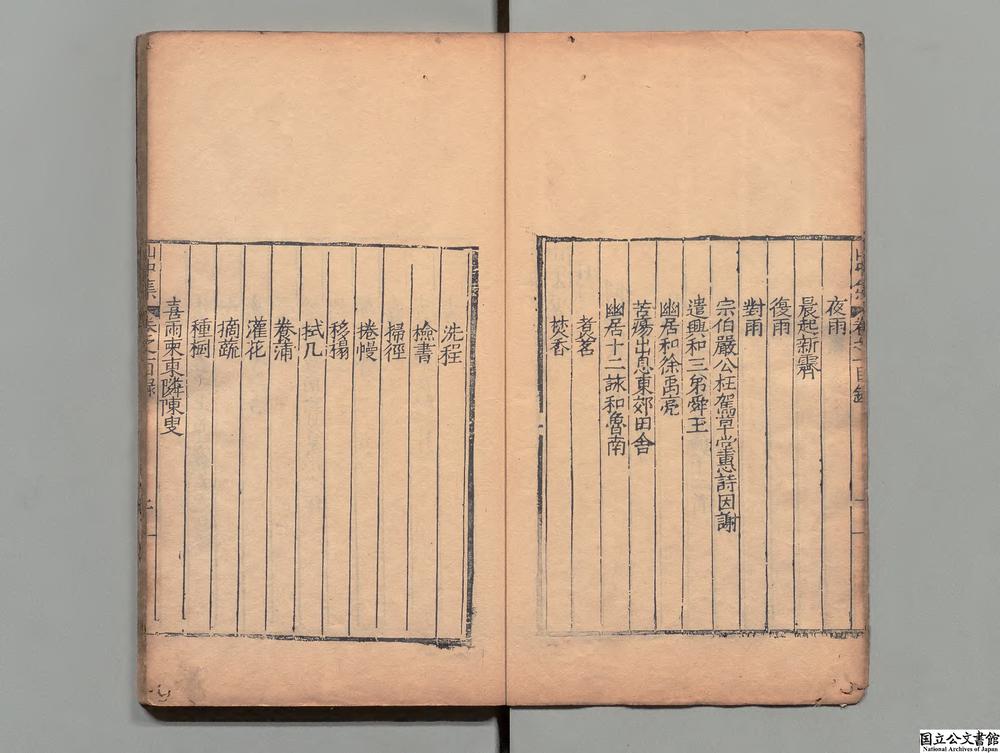 夜雨
晨起新霽
復雨
對雨
宗伯嚴公枉駕草堂惠詩因謝
遣興和三弟舜王
幽居和徐禹亮
苦瘍出息東郊田舍
幽居十二詠和魯南
煮茗
焚香
洗程
檢書
掃徑
捲幔
移榻
拭几
養蒲
灌花
摘蔬
種樹
喜雨柬東隣陳叟
卷之一目錄
国立公文書館
National Archives of Japan